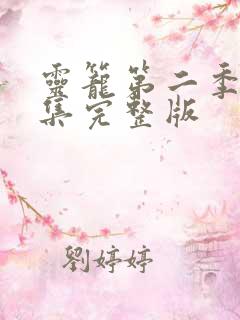 靈籠第二季
集完整版
劉婷婷